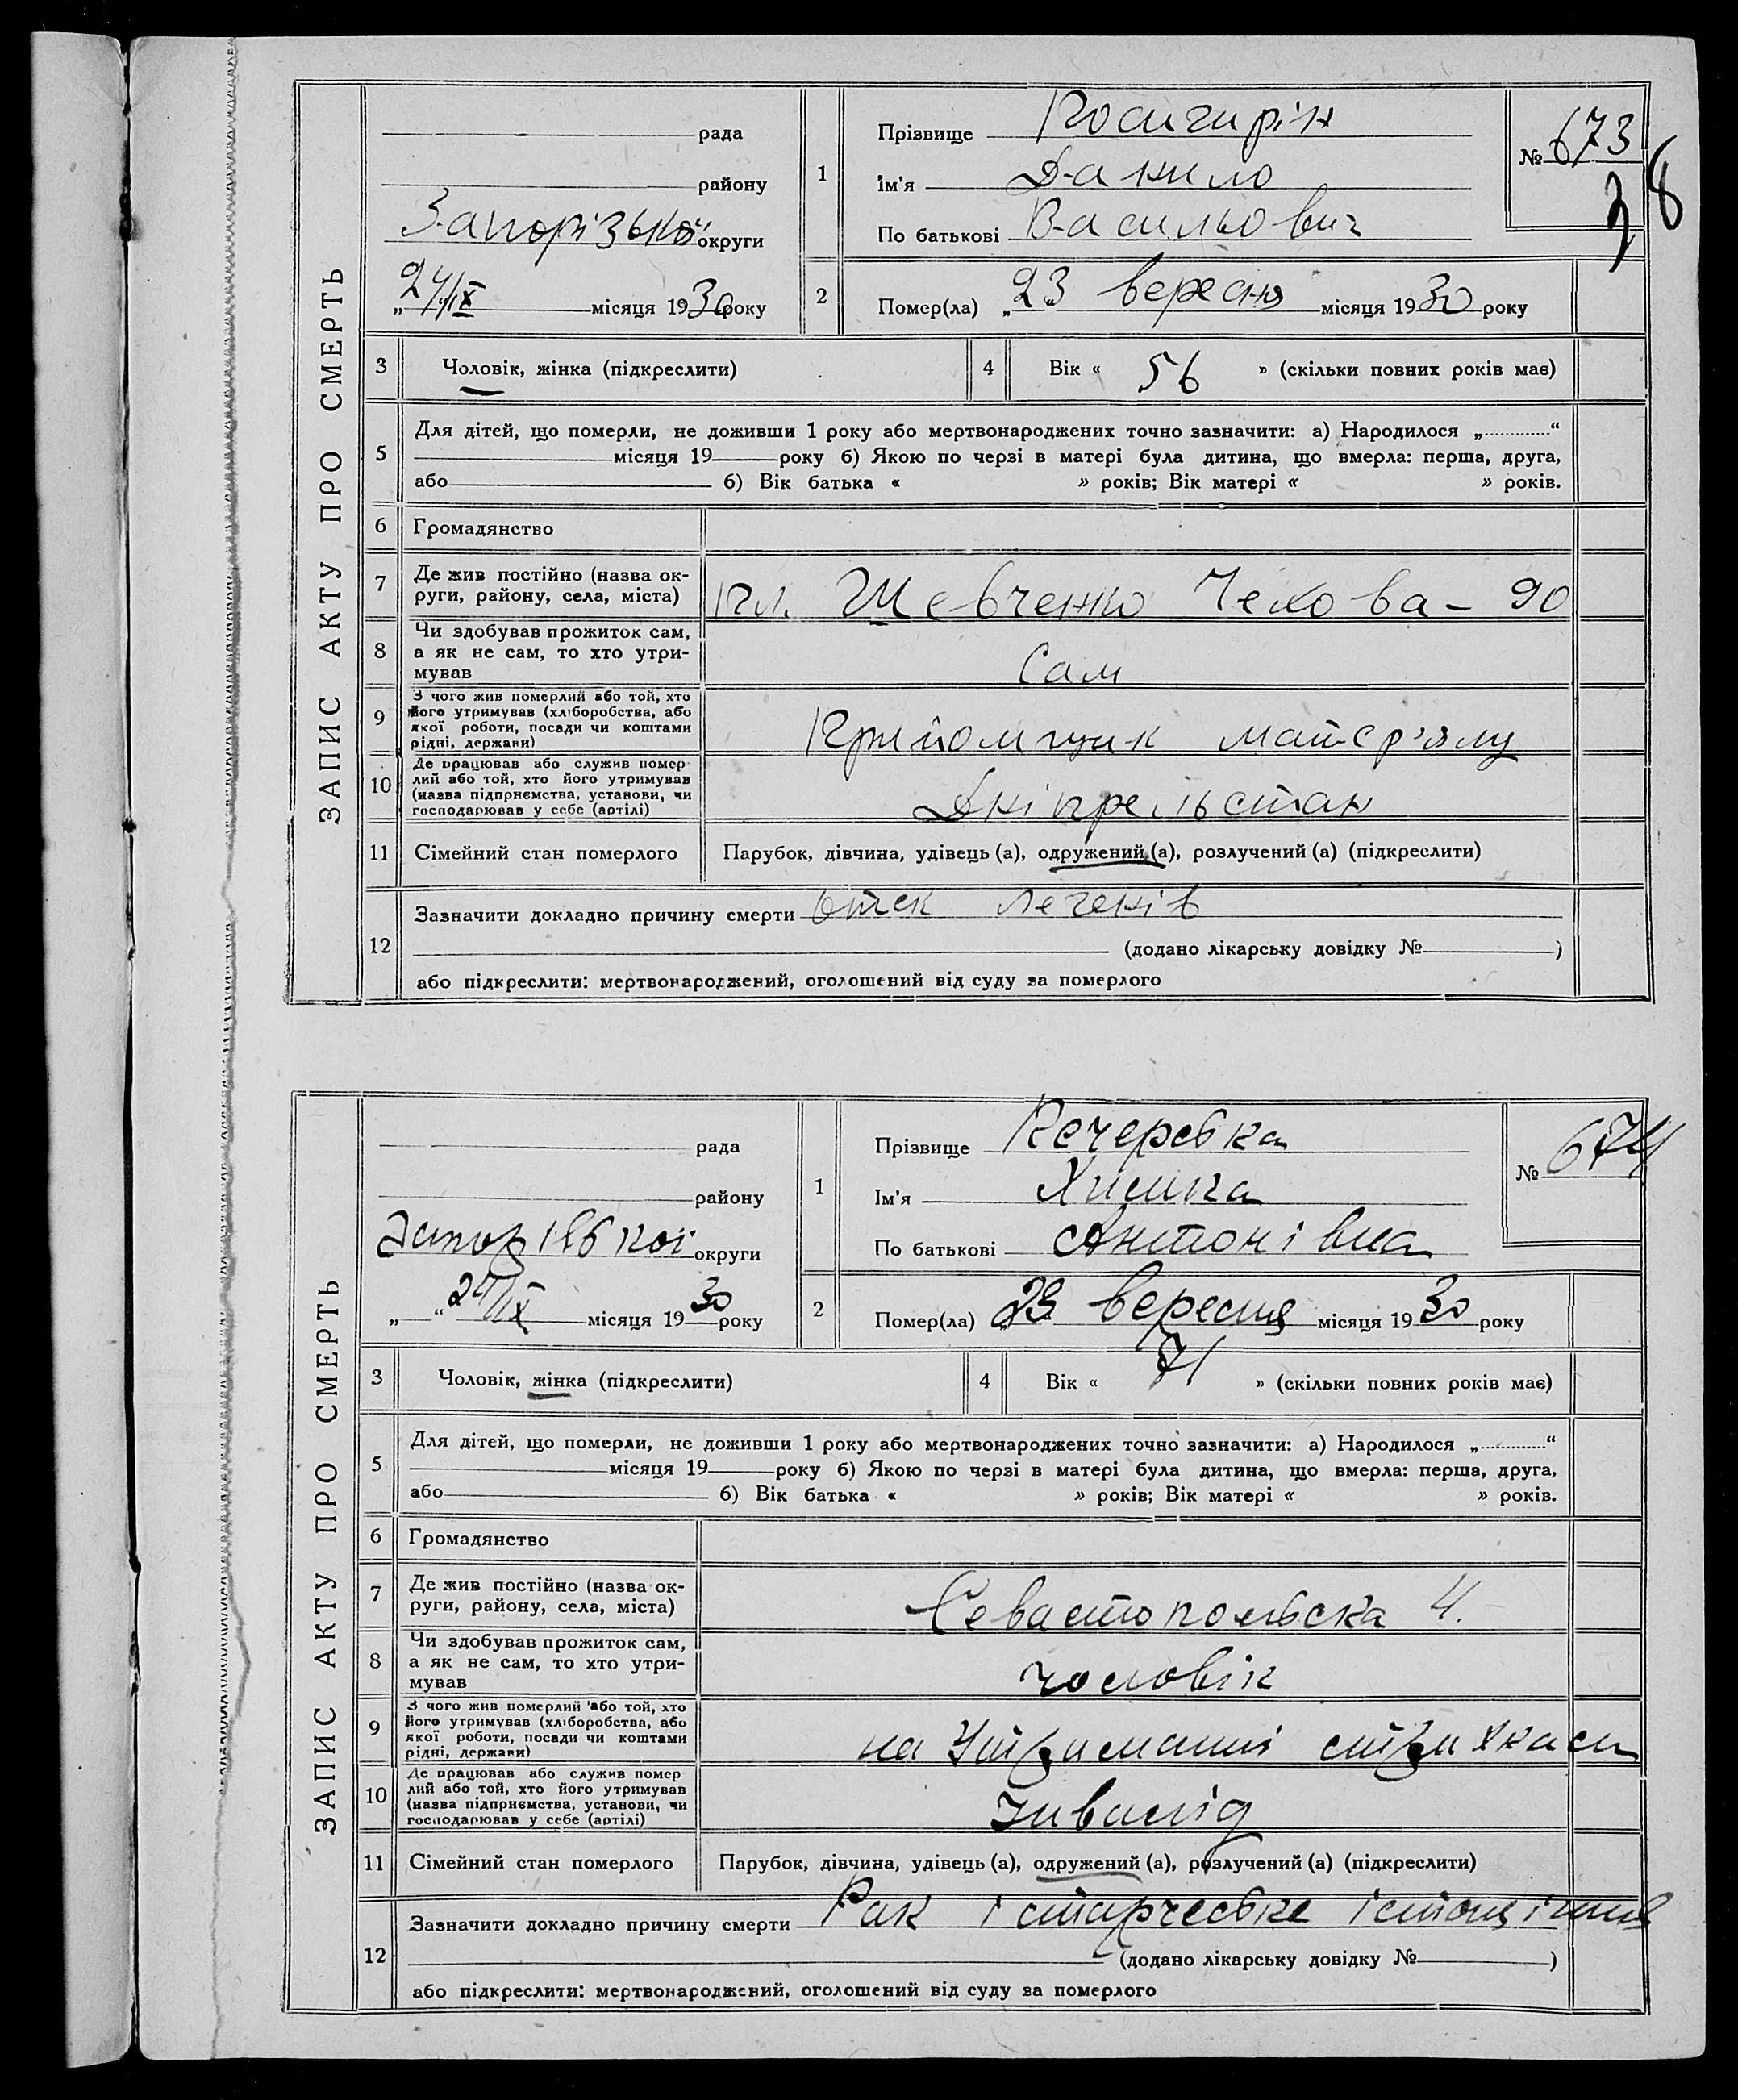 ЗАПИС АКТУ ПРО СМЕРТЬ
рада
району
Запорізької округи
„24/IX місяця 1930 року
1
Прізвище
Ім'я Данило
По батькові Васильович
№ 673
38
2
Помер(ла) „23 вересня місяця 1930 року
3 Чоловік, жінка (підкреслити)
4 Вік « 56 » (скільки повних років має)
5
Для дітей, що померли, не доживши 1 року або мертвонароджених точно зазначити: а) Народилося „............“
місяця 19 року б) Якою по черзі в матері була дитина, що вмерла: перша, друга,
або 6) Вік батька « » років; Вік матері « » років.
6 Громадянство
7 Де жив постійно (назва ок-
руги, району, села, міста)
пл. Шевченко Чехова - 90
8 Чи здобував прожиток сам,
а як не сам, то хто утри-
мував
Сам
9 З чого жив померлий або той, хто
його утримував (хліборобства, або
якої роботи, посади чи коштами
рідні, держави)
Прийомщик матер'ялу
10 Де працював або служив помер
лий або той, хто його утримував
(назва підпрнємства, установи, чи
господарював у себе (артілі)
Дніпрельстан
11 Сімейний стан померлого
Парубок, дівчина, удівець (а), одружений (а), розлучений (а) (підкреслити)
12
Зазначити докладно причину смерти отек легенів
(додано лікарську довідку № )
або підкреслити: мертвонароджений, оголошений від суду за померлого
ЗАПИС АКТУ ПРО СМЕРТЬ
рада
району
округи
„ “ 24/IX місяця 1930 року
1
Прізвище Печерська
Ім'я Химка
По батькові Антонівна
№ 674
2
Помер(ла) 23 вересня місяця 1930 року
3 Чоловік, жінка (підкреслити)
4 Вік « 71 » (скільки повних років має)
5
Для дітей, що померли, не доживши 1 року або мертвонароджених точно зазначити: а) Народилося „............“
місяця 19 року б) Якою по черзі в матері була дитина, що вмерла: перша, друга,
або 6) Вік батька « » років; Вік матері « » років.
6 Громадянство
7 Де жив постійно (назва ок-
руги, району, села, міста)
Севастопольска 4.
8 Чи здобував прожиток сам,
а як не сам, то хто утри-
мував
чоловік
9 З чого жив померлий або той, хто
його утримував (хліборобства, або
якої роботи, посади чи коштами
рідні, держави)
на утриманні страхкаси
10 Де працював або служив помер
лий або той, хто його утримував
(назва підпрнємства, установи, чи
господарював у себе (артілі)
інвалід
11 Сімейний стан померлого
Парубок, дівчина, удівець (а), одружений (а), розлучений (а) (підкреслити)
12
Зазначити докладно причину смерти Рак і старческе
(додано лікарську довідку № )
або підкреслити: мертвонароджений, оголошений від суду за померлого